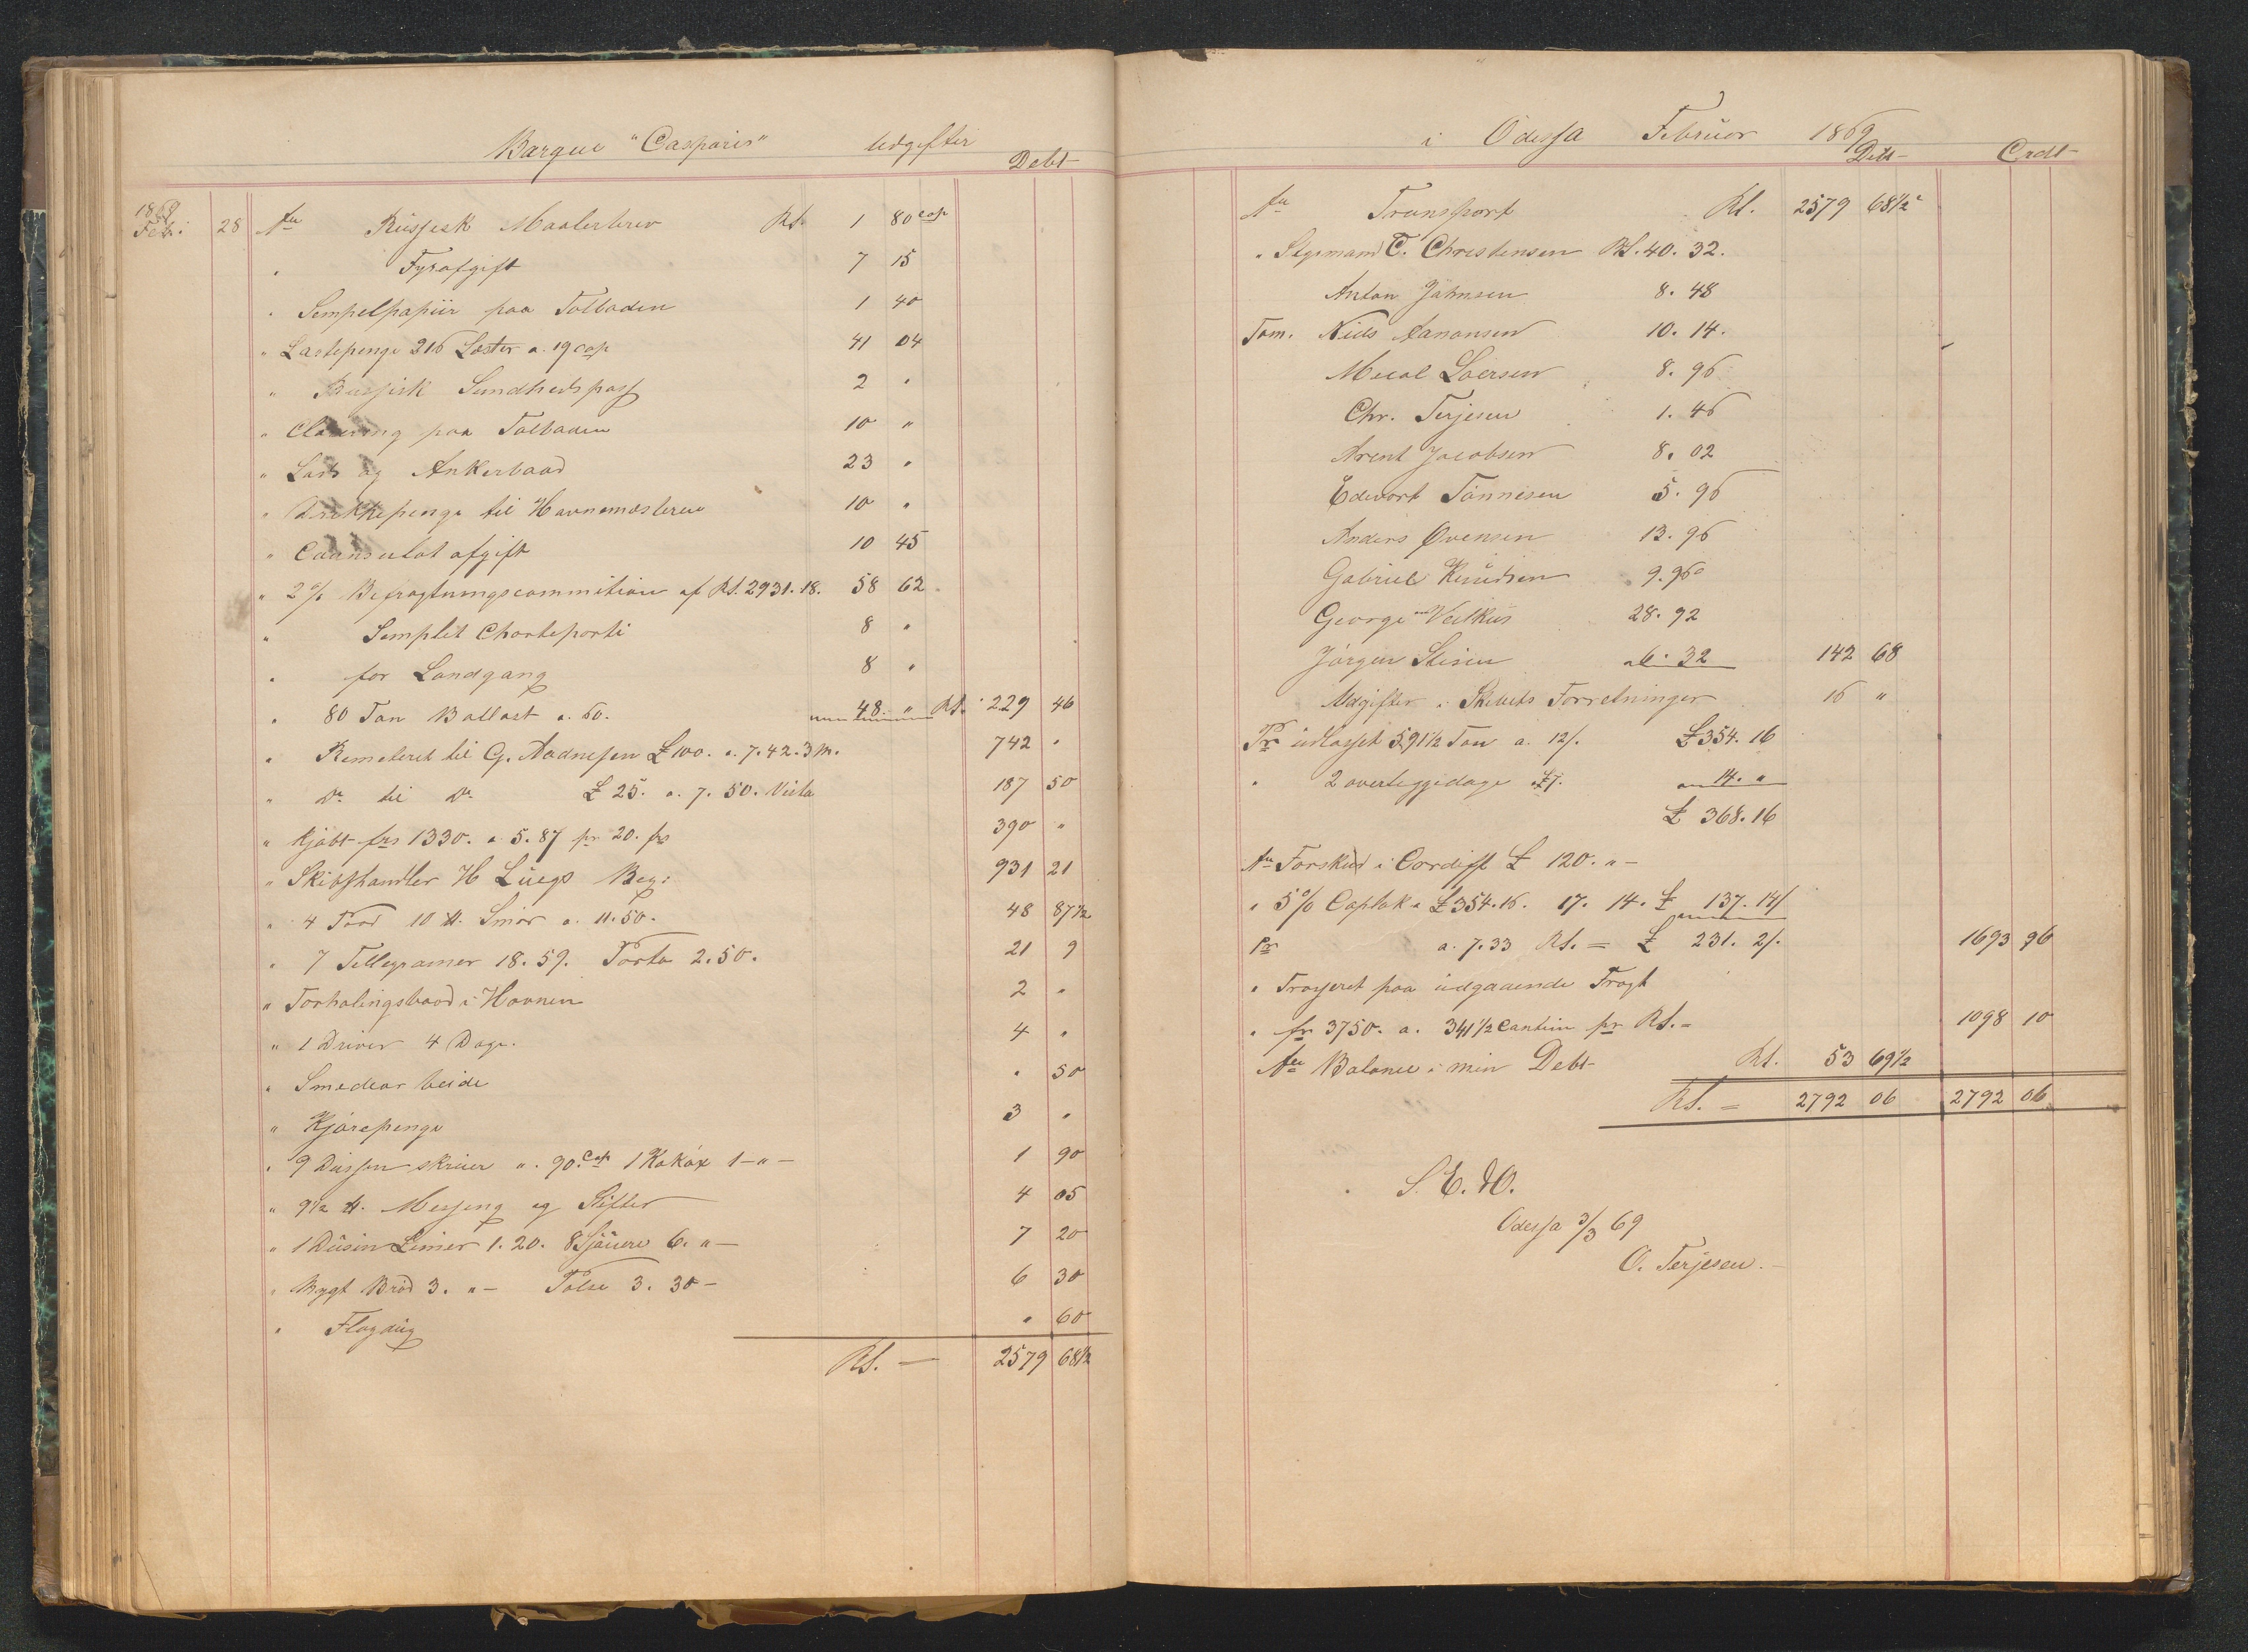 Barque "Casparis" Udgifter
Debt
1869
Feb: 28 An Russisk Maalerbrev Rs. 1 80 cop
" Fyrafgift 7 15
" Stempelpapiir paa Tolboden 1 40
" Lastepenge 216 Lester a. 19 cop 41 04
" Russisk Sundhedspass 2 "
" Clarering paa Tolboden 10 "
" Lods og Ankerbaad 23 "
" Drikkepenge til Havnemesteren 10 "
" Caansulat afgift 10 45
" 2% Befragtningscommition af Rs. 2931.18. 58 62
" Stemplet Charteparti 8 "
" for Landgang 8 "
" 80 Ton Ballast a. 60. 48 " Rs. 229 46
" Remeteret til G. Aadnesen £ 100. a. 7.42. 3 m. 742 "
" Do. til Do. £ 25. a. 7.50. Vista 187 50
" Kjöbt frs 1330. a. 5.87 pr 20. frs 390 "
" Skibshandler H Luegs Reg: 931 21
" 4 Food 10 ℔. Smör a. 11.50. 48 87½
" 7 Tellegramer 18.59. Porto 2.50. 21 9
" Forhalingsbaad i Havnen 2 "
" 1 Driver 4 Dage. 4 "
" Smedearbeide " 50
" Kjörepenge 3 "
" 9 Dussen skruer a. 90. cop 1 Kaköx 1 - " - 1 90
" 9½ ℔. Messeng og Stifter 4 05
" 1 Dusin Limer 1.20. 8 Sjöuere 6. " - 7 20
" Bygt Bröd 3. " - Pölse 3.30 - 6 30
" Flagdug " 60
Rs. — 2579 68½
i Odessa Februar 1869
Debt - Credt -
An Transport Rs. 2579 68½
" Styrmand T. Christensen Rs. 40. 32.
Anton Johnsen 8. 48
Töm. Niels Aanonsen 10. 14.
Larsen 8. 96
Chr. Terjesen 1. 46
Arent Jacobsen 8. 02
Edevart Tönnesen 5. 96
Anders Ovensen 13. 96
Gabriel Knudsen 9. 96
George Veilkus 28. 92
Jörgen Stisen 6. 32 142 68
Udgifter i Skibets Forretninger 16 "
Pr udlosset 591½ Ton a. 12/. £ 354. 16
" 2 overliggedage a £ 7. 14. "
£ 368. 16
An Forskud i Cardiff £ 120. " -
" 5% Caplak a £ 354.16. 17. 14. £ 137. 14/
Pr a. 7.33 Rs. = £ 231. 2/. 1693 96
" Trasseret paa udgaaende Fragt
" fr 3750. a. 341½ Cantim pr Rs. = 1098 10
An Balance i min Debt - Rs. 53 69½
Rs. = 2792 06 2792 06
S. E. &O.
Odessa 3/3 69
O. Terjesen. -